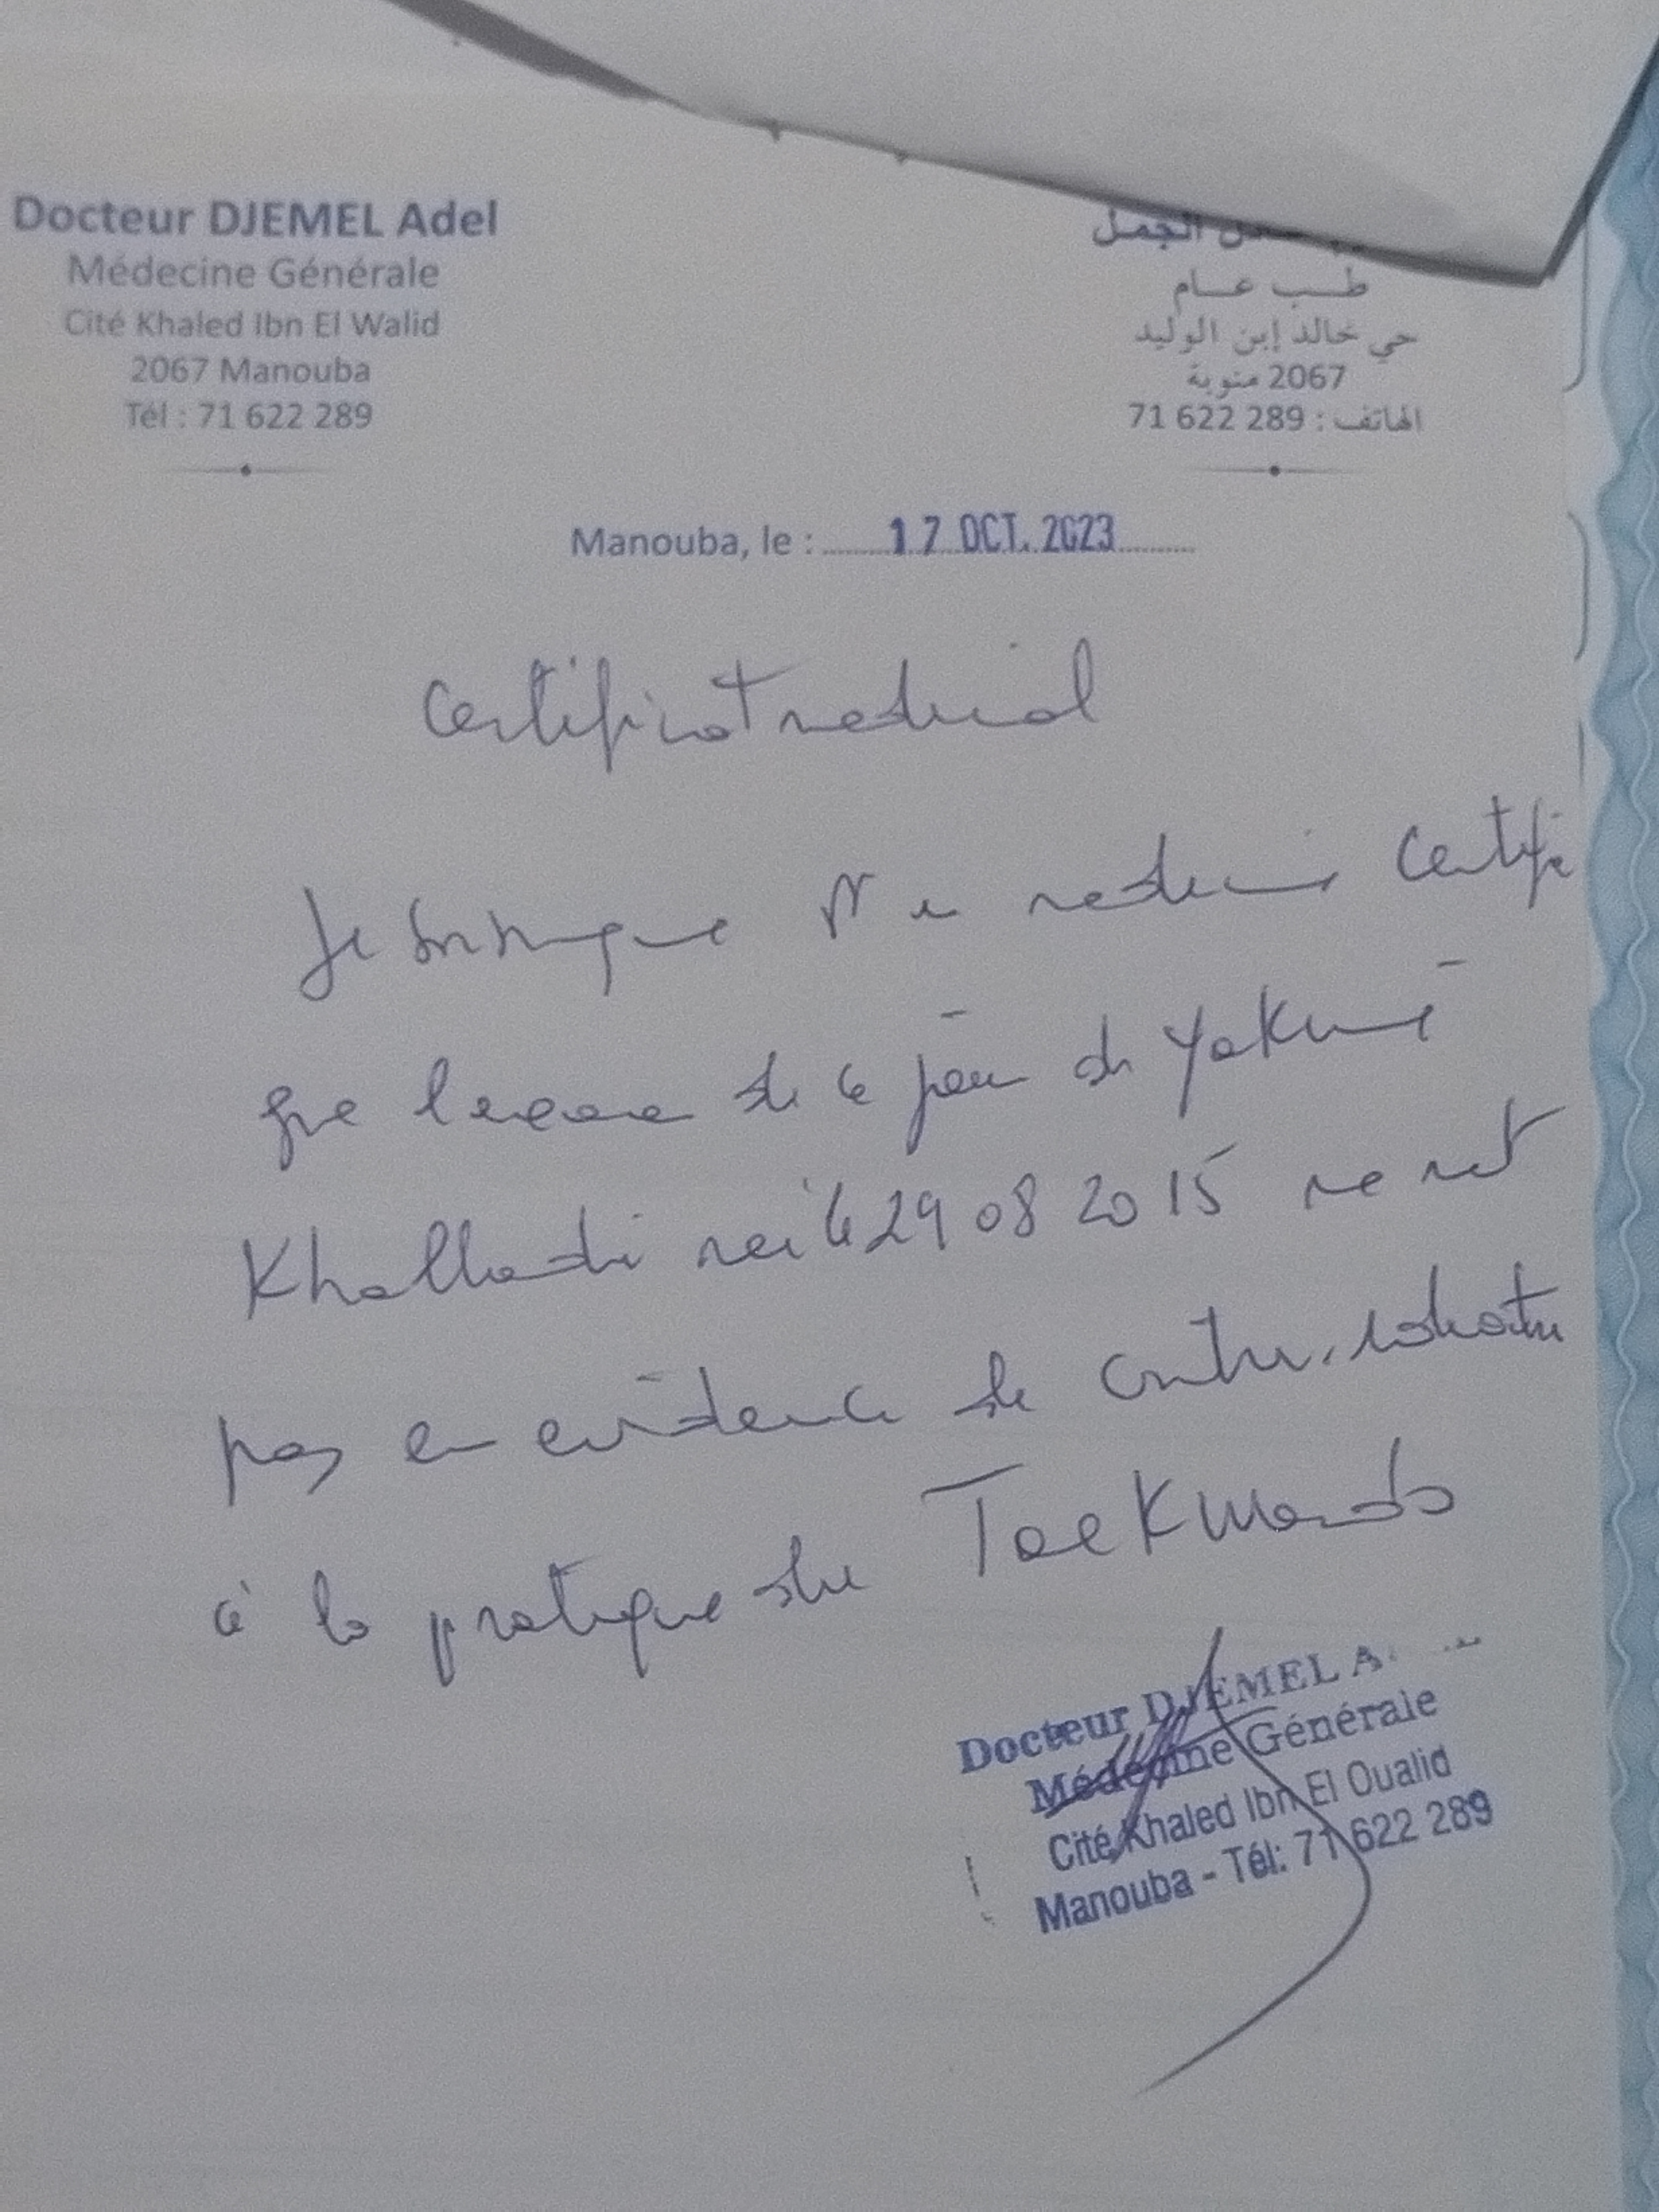 Docteur DJEMEL Adel
Médecine Générale
Cité Khaled Ibn El Walid
2067 Manouba
Tél : 71 622 289
الجمل
طب عام
حي خالد إبن الوليد
2067 منوبة
الهاتف : 71 622 289
Manouba, le : 17 OCT. 2023
Certificat medical
Je medecin Certifie
que de ce jour de
Khalladi né le 29 08 2015 ne met
pas en evidence de contre-indication
à la pratique du TaeKwondo
Docteur DJEMEL A
Médecine Générale
Cité Khaled Ibn El Oualid
Manouba - Tél: 71 622 289